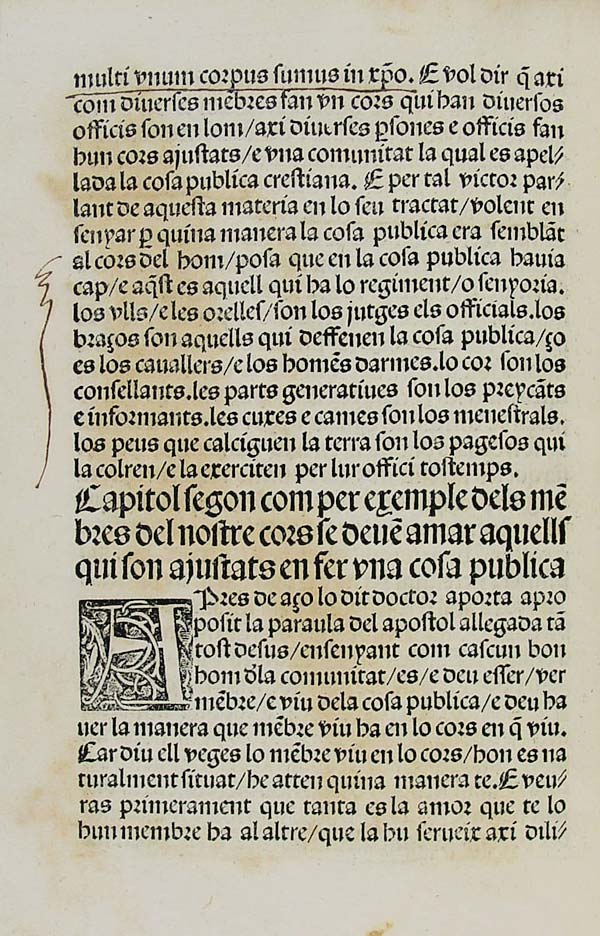 multi vnum corpus sumus in xp̄o. E vol dir q̄ axi
com diuerses mēbres fan vn cors qui han diuersos
officis son en lom/axi diuerses ꝑsones e officis fan
hun cors ajustats/e vna comunitat la qual es apel//
lada la cosa publica crestiana. E per tal victor par//
lant de aquesta materia en lo seu tractat/volent en
senyar ꝑ quina manera la cosa publica era semblāt
al cors del hom/posa que en la cosa publica hauia
cap/e aq̄st es aquell qui ha lo regiment/o senyoria.
los vlls/e les orelles/son los jutges els officials.los
braços son aquells qui deffenen la cosa publica/ço
es los cauallers/e los homēs darmes.lo cor son los
consellants.les parts generatiues son los preycāts
e informants.les cuxes e cames son los menestrals.
los peus que calciguen la terra son los pagesos qui
la colren/e la exerciten per lur offici tostemps.
Capitol segon com per exemple dels mē
bres del nostre cors se deuē amar aquells
qui son ajustats en fer vna cosa publica
APres de aço lo dit doctor aporta apro
posit la paraula del apostol allegada tā
tost desus/ensenyant com cascun bon
hom d̄la comunitat/es/e deu esser/ver
mēbre/e viu dela cosa publica/e deu ha
uer la manera que mēbre viu ha en lo cors en q̄ viu.
Car diu ell veges lo mēbre viu en lo cors/hon es na
turalment situat/he atten quina manera te.E veu//
ras primerament que tanta es la amor que te lo
hun membre ha al altre/que la hu serueix axi dili//